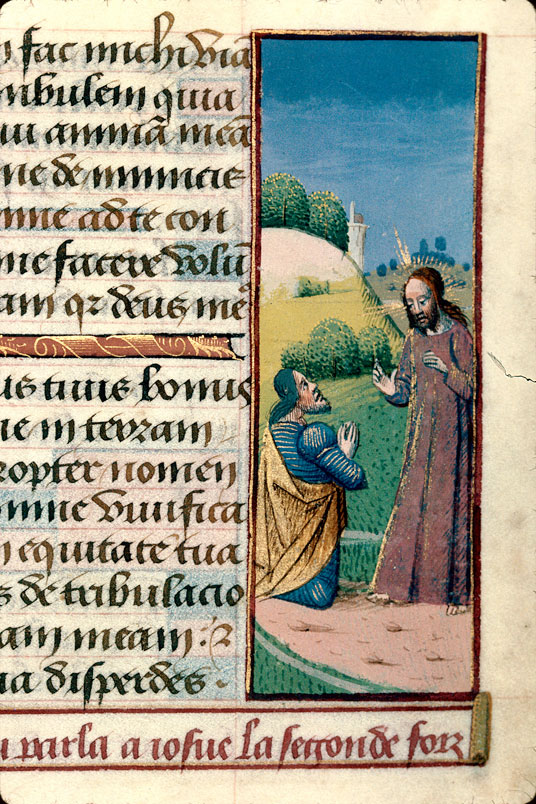 fac michi viā
ribulem quia
ui animā meā
me de inimicis
mine ad te con
me facere volū
am qr deus me᾽
us tuus bonus
me in terram
ropter nomen
omine vivifica
n equitate tua
s de tribulacio
am meam :
ia disperdes .
u parla a iosue la seconde foiz